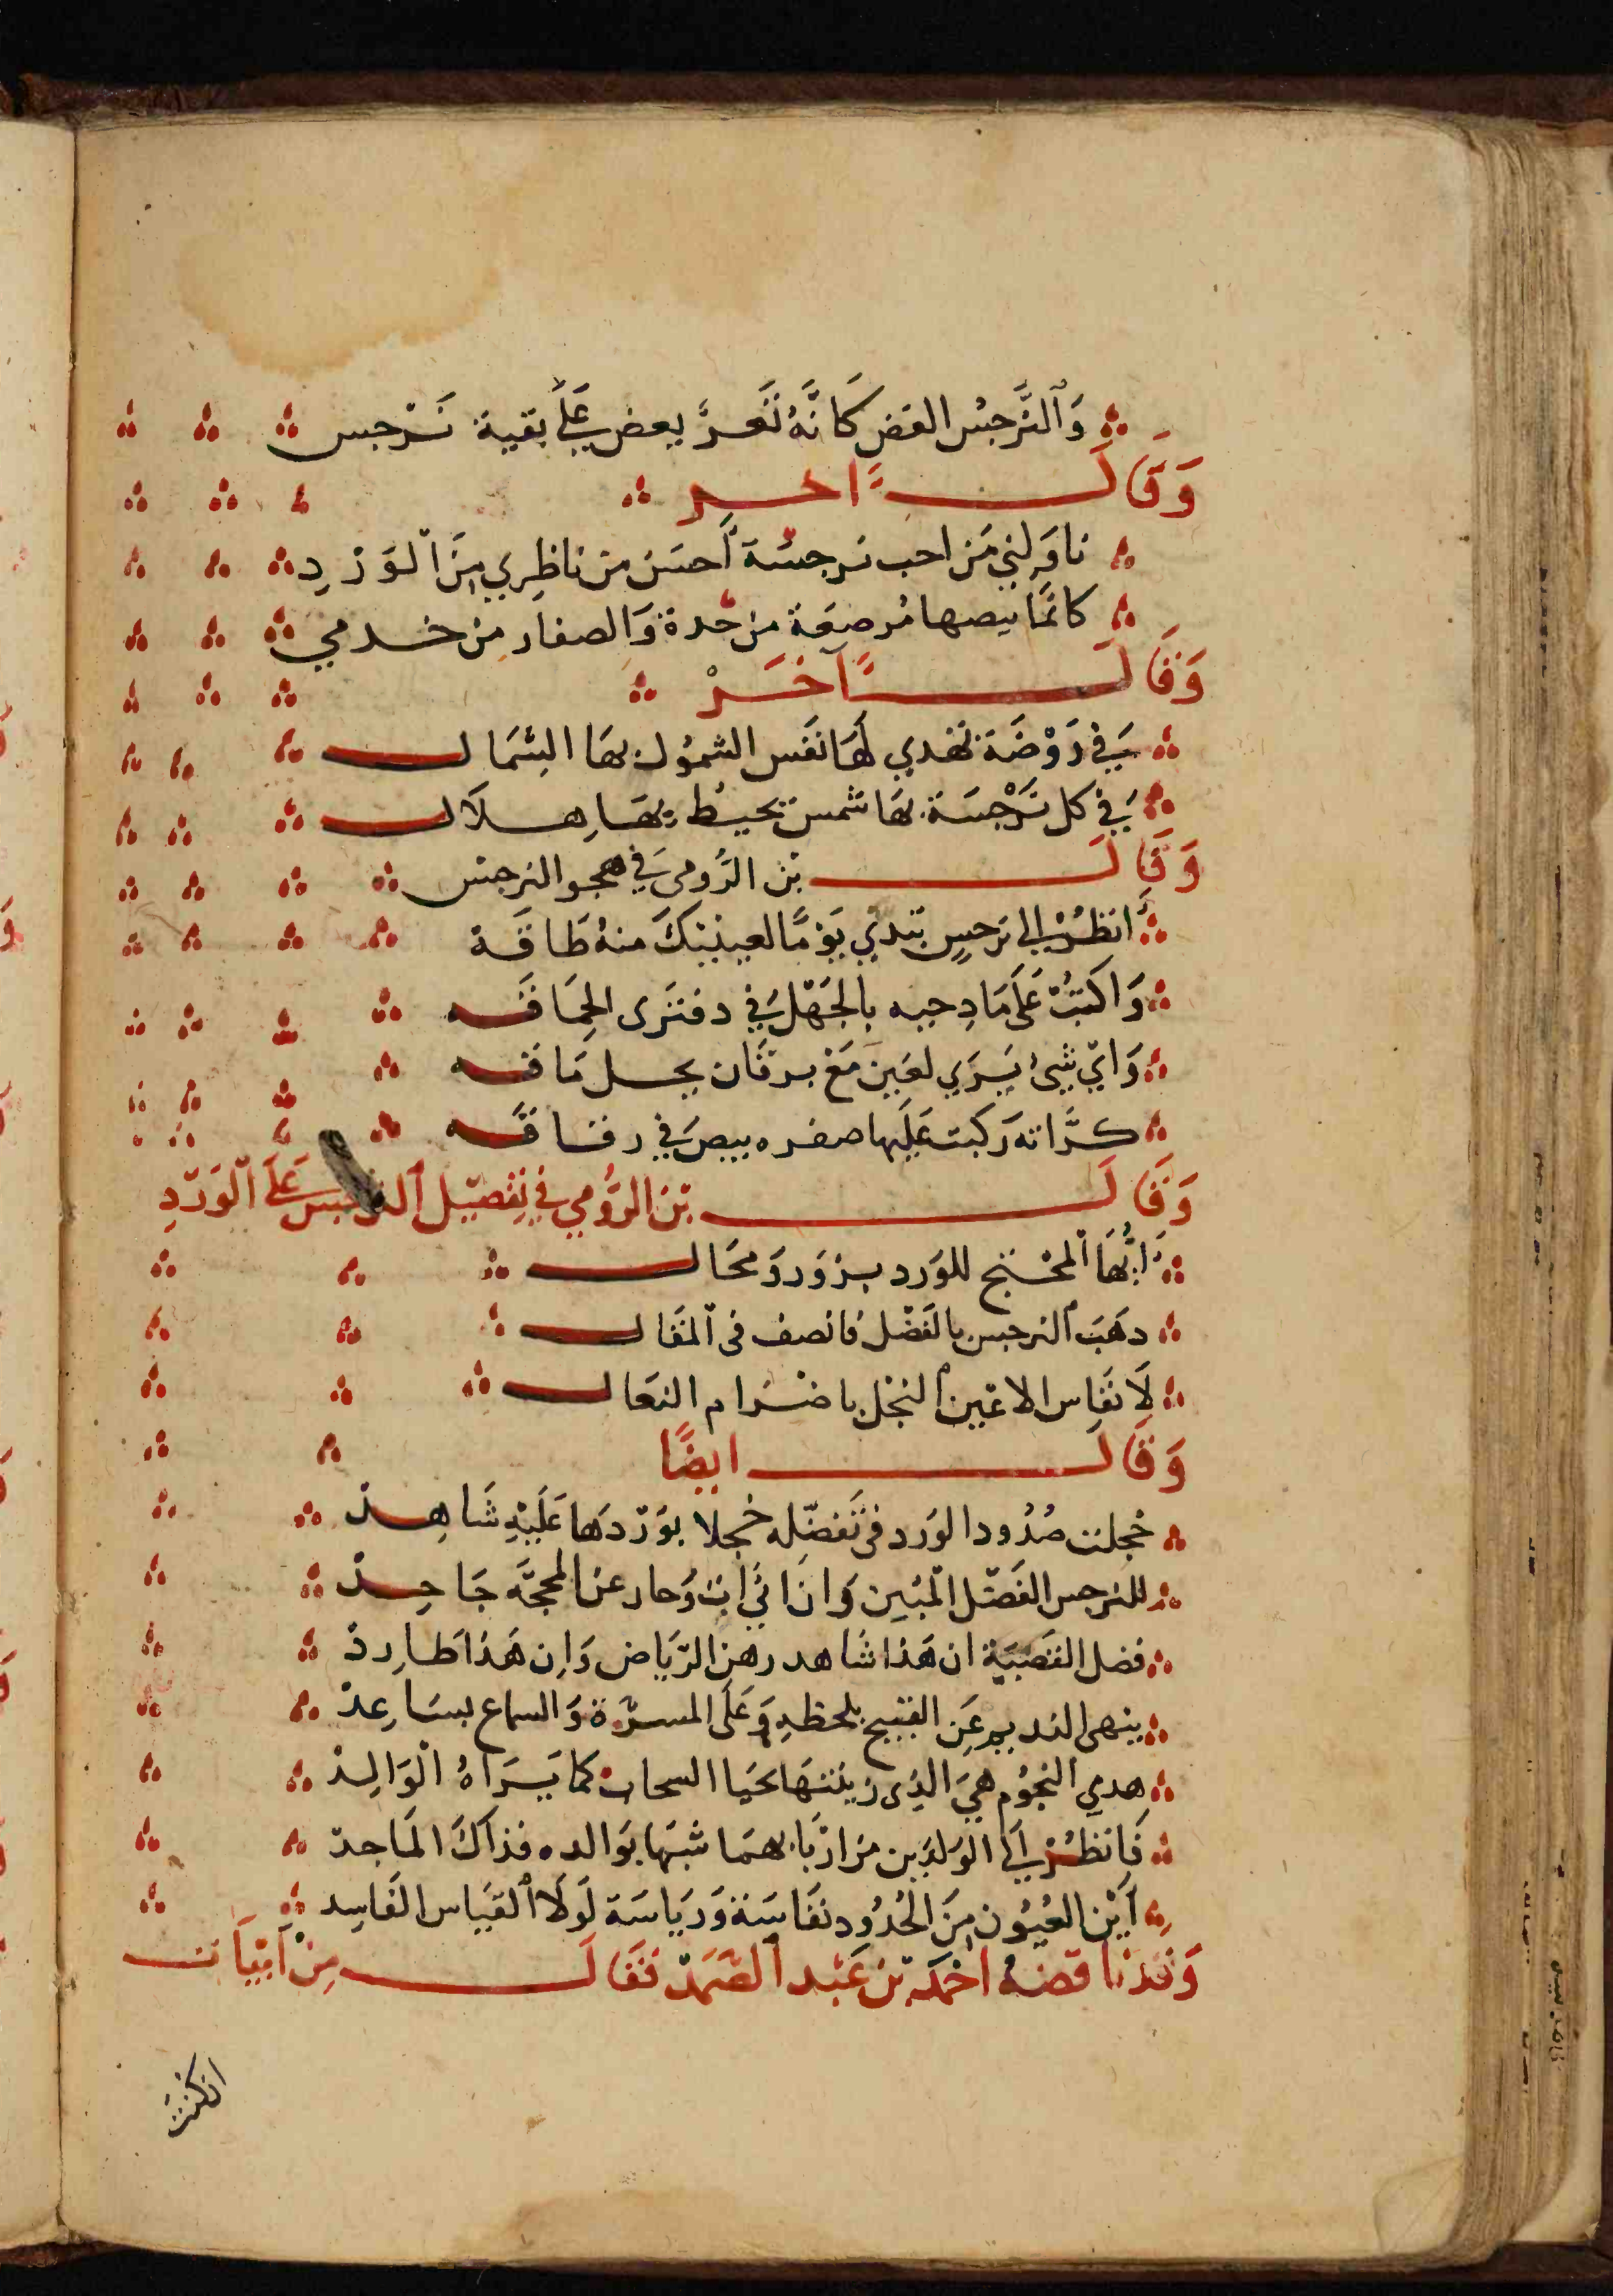 وَالنَّرجسُ الغض كَانَّهُ ثَغرٌ يعض عَلَى بقية نَرْجس
وَقَالَ اخر
ناوَلني مَن احب نرجسَة أحسَن من ناظِري مِنَ الْوَرْدِ
كانمَا بيصها مُرصعَة من خده وَالصفار من خدمي
وَقَالَ آخَرْ
فِي رَوْضَة تهدي لهَا نفَس الشمُول بهَا الشمَال
فِي كل نَرْجسَة بهَا شمس تحيط بهَا هلَال
وَقَالَ بْن الرُّومى فِي هجو النرجس
انظُرْ إلى نرجسٍ تبَدّي يَوْمًا لعينيكَ منهُ طَاقَة
وَاكتبْ عَلَى مَادِحيه بالجَهْل فِي دفتَرى الحِمَاقَه
وَايّ شَيْ يَرَي لعَين مَعْ يرقَان يحل مَاقه
كرَّاته رَكبت عَلَيها صفره بيض فِي رقاقَه
وَقَالَ بْن الرُّومي فِي تفضيل النرجس عَلَى الْوَرْدِ
أيُّهَا الْمحْتج للوَرد بزوَر وَمحَال
دهَبَ النرجس بالفَضْل فانصف فى الْمقَال
لَا تقَاس الاعْين النجْل باضرَام النعَال
وَقَالَ ايضًا
خجلت خدُود الوَرد فى تَفضّله خجلا بوَرْدهَا عَلَيْهِ شَاهِدْ
للنرجس الفَضْل الْمُبِين وَان اتَى ات وَحار عن المحجَّه جَاحِدْ
فصل القَضَيّة ان هَذا شاهد رهن الرّيَاض وَان هَذا طارِدْ
ينهى النديم عَن القبيح بلحظهِ وَعَلَى المسرّة وَالسماع يسَاعِدْ
هدي النجُوم هيَ الذِى زينتهَا بحَيا السحاب كما يَرَاهُ الْوَالِدْ
فَانظُرْ إلَى الوَلدَين من ادْنَاهمَا شبهًا بوَالده فذاكَ الْمَاجدْ
أيْن العُيُون مِنَ الخُدُود نفَاسَة وَريَاسَة لَولَا القيَاس الفَاسِد
وَقدْ ناقضَهُ احْمَد بْن عَبْد الصَّمَدْ فَقَالَ مِنْ أبْيَات
انكنتَ